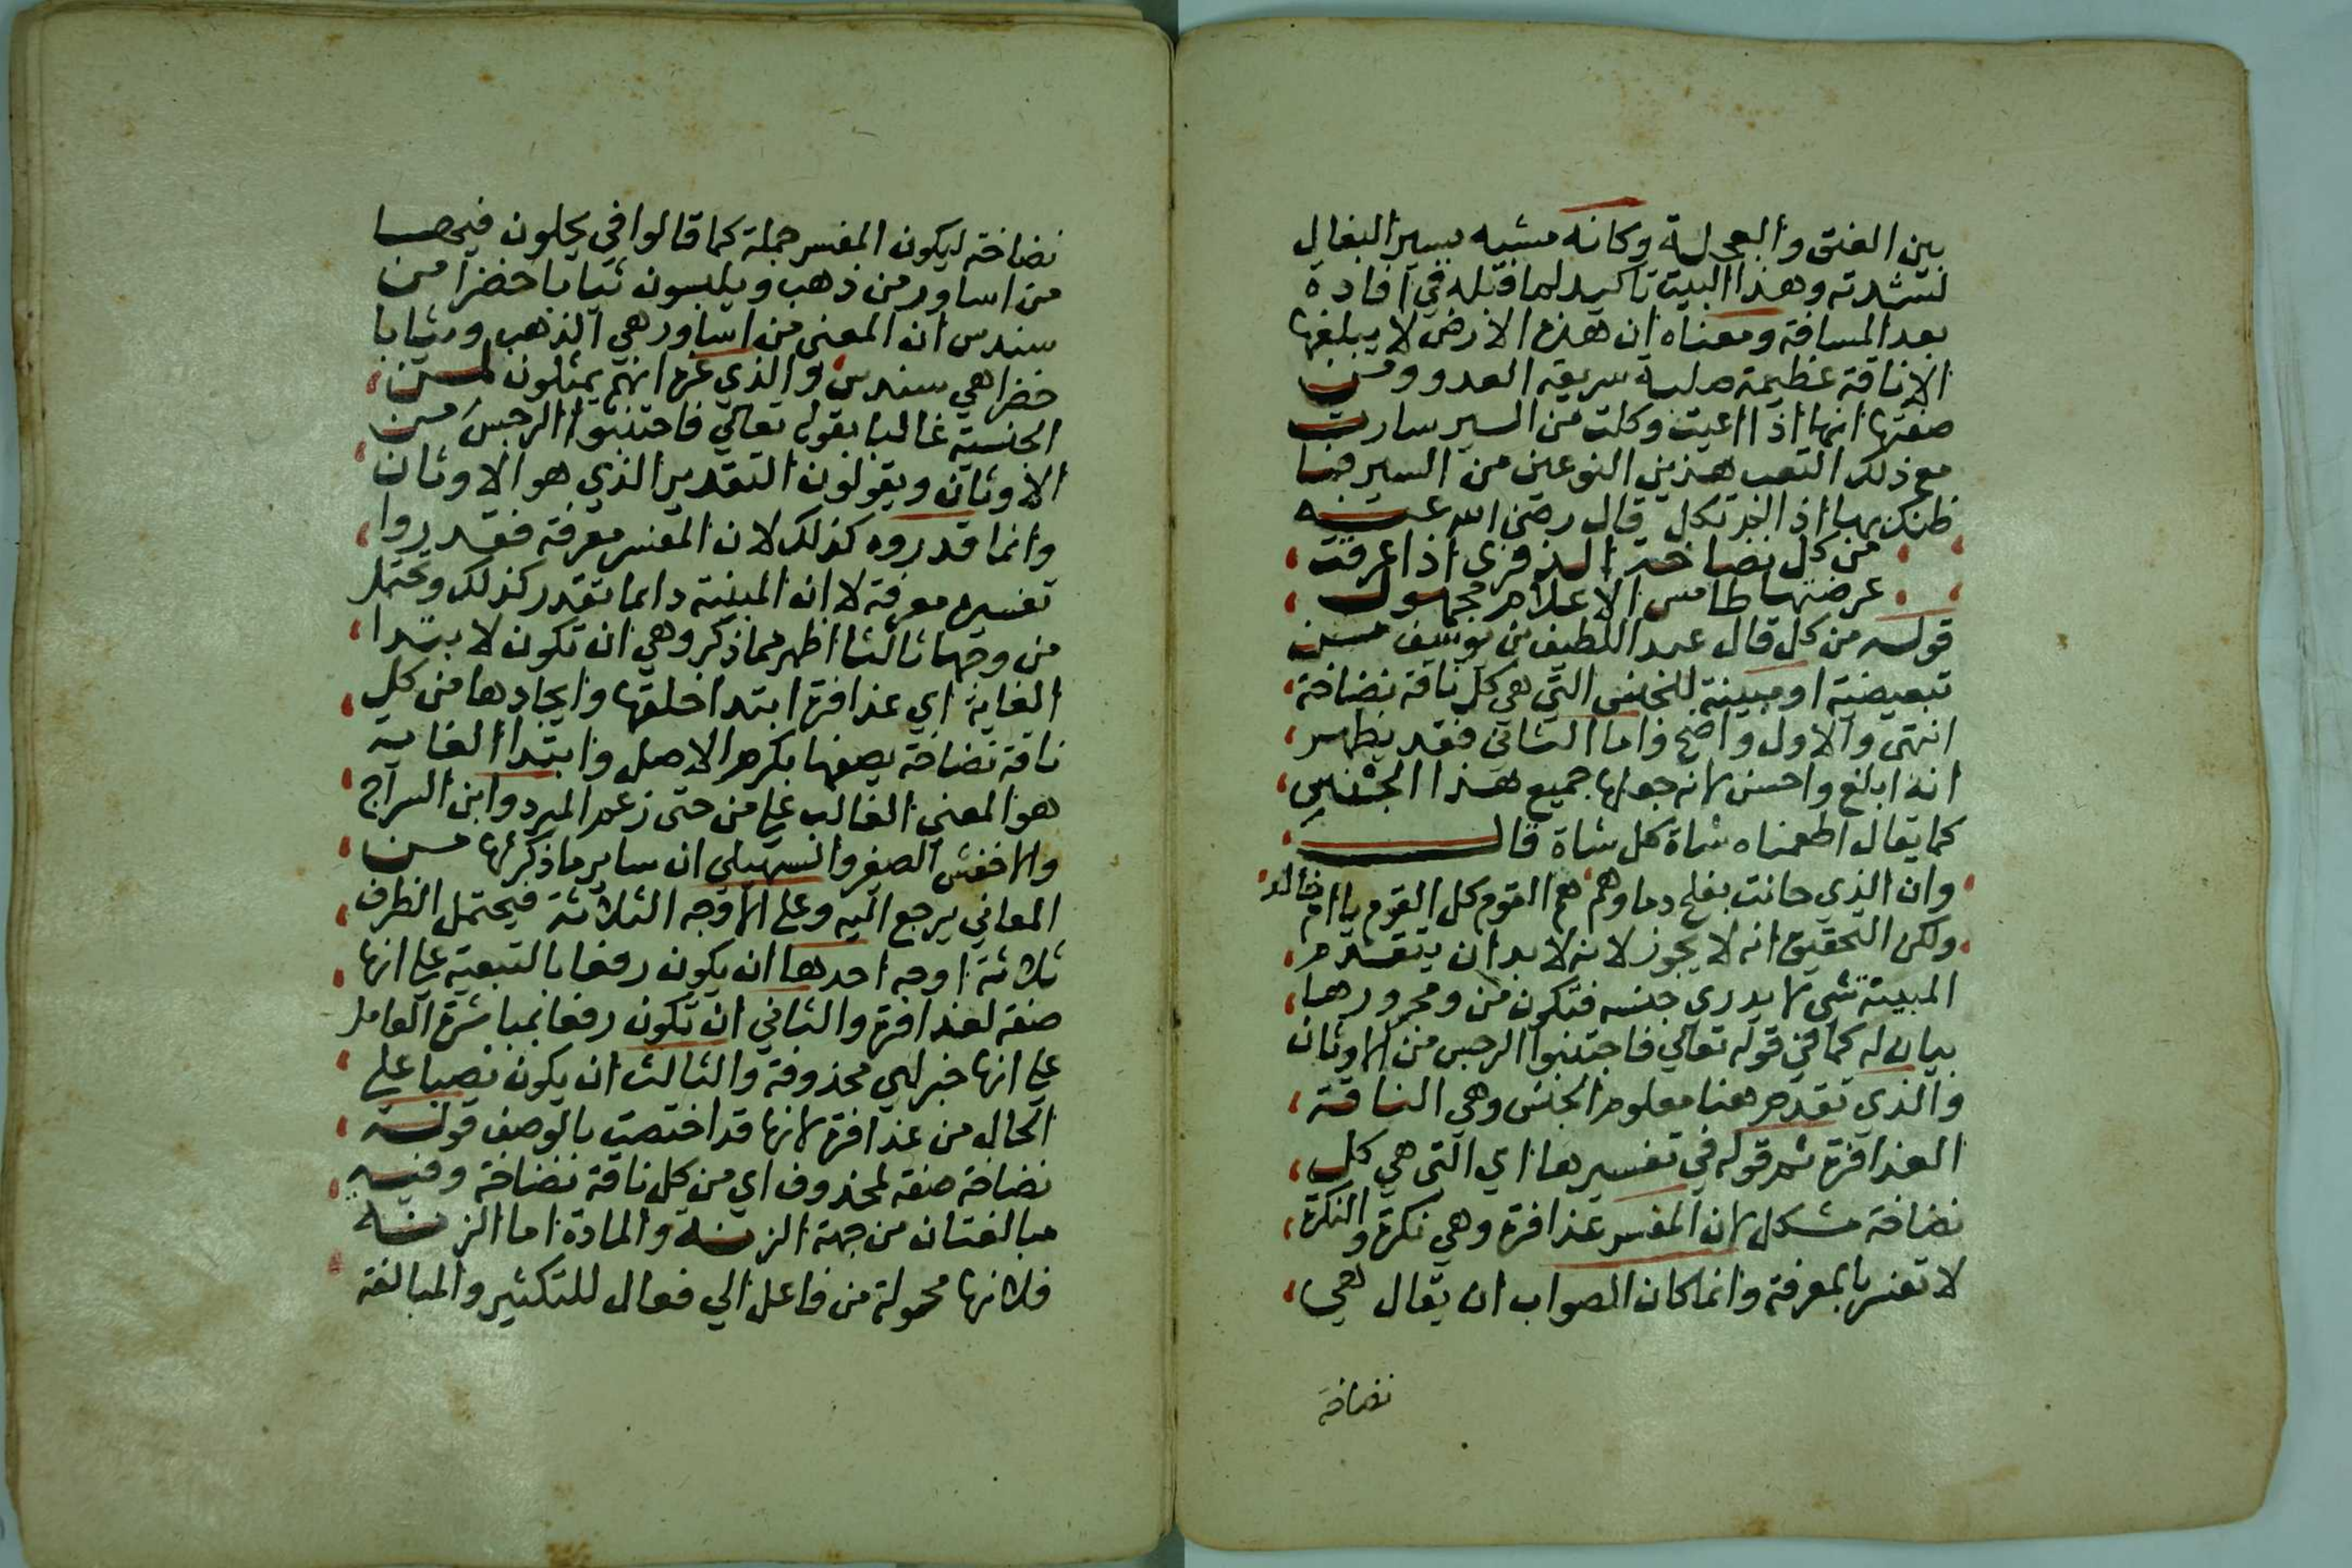 بين العنق والعجلة وكانه مشبه بسير البغال
لشدته وهذا البيت تاكيد لما قبله في افادة
بعد المسافة ومعناه ان هذه الارض لا يبلغها
الا ناقة عظيمة صلبة سريعة العدو ومن
صفتها انها اذا اعيت وكلت من السير سارت
مع ذلك التعب هذين النوعين من السير فما
ظنك بها اذا لم تكل قال رضي الله عنه
من كل نضاخة الذفرى اذا عرقت
عرضتها طامس الاعلام مجهول
قوله من كل قال عبد اللطيف بن يوسف من
تبعيضية او مبينة للجنس التي هي كل ناقة نضاخة
انتهى والاول واضح واما الثاني فقد يظهر
انه ابلغ واحسن لانه جعلها جميع هذا الجنس
كما يقال اطعمناه شاة كل شاة قال
وان الذي حانت بفلج دماوهم هم القوم كل القوم يا ام خالد
ولكن التحقيق انه لا يجوز لانه لا بد ان يتقدم
المبينة شي لا يدري جنسه فتكون من ومجرورها
بيان له كما في قوله تعالي فاجتنبوا الرجس من الاوثان
والذي تقدم هنا معلوم الجنس وهي الناقة
العذافرة ثم قوله في تفسيرها اي التي هي كل
نضاخة مشكل لان المفسر عذافرة وهي نكرة والنكرة
لا تفسر بالمعرفة وانما كان الصواب ان يقال هي
نضاخة
نضاخة ليكون المفسر جملة كما قالوا في يحلون فيها
من اساور من ذهب ويلبسون ثيابا خضرا من
سندس ان المعنى من اساور هي الذهب وثيابا
خضرا هي سندس والذي غره انهم يمثلون لمن
الجنسية غالبا بقوله تعالي فاجتنبوا الرجس من
الاوثان ويقولون التقدير الذي هو الاوثان
وانما قدروه كذلك لان المفسر معرفة فقدروا
تفسيره معرفة لا ان المبينة دايما تقدر كذلك وتحتمل
من وجها ثالثا اظهر مما ذكر وهي ان تكون لابتدا
الغاية اي عذافرة ابتدا خلقها وايجادها من كل
ناقة نضاخة يصفها بكرم الاصل وابتدا الغاية
هو المعني الغالب علي من حتى زعم المبرد وابن السراج
والاخفش الصغير والسهيلي ان ساير ما ذكر لها من
المعاني يرجع اليه وعلي الاوجه الثلاثة فيحتمل الظرف
ثلاثة اوجه احدها ان يكون رفعا بالتبعية علي انها
صفة لعذافرة والثاني ان تكون رفعا بمباشرة العامل
علي انها خبر لهي محذوفة والثالث ان يكون نصبا علي
الحال من عذافرة لانها قد اختصت بالوصف قوله
نضاخة صفة لمحذوف اي من كل ناقة نضاخة وفيه
مبالغتان من جهة الزنة والمادة اما الزنة
فلانها محولة من فاعل الي فعال للتكثير والمبالغة